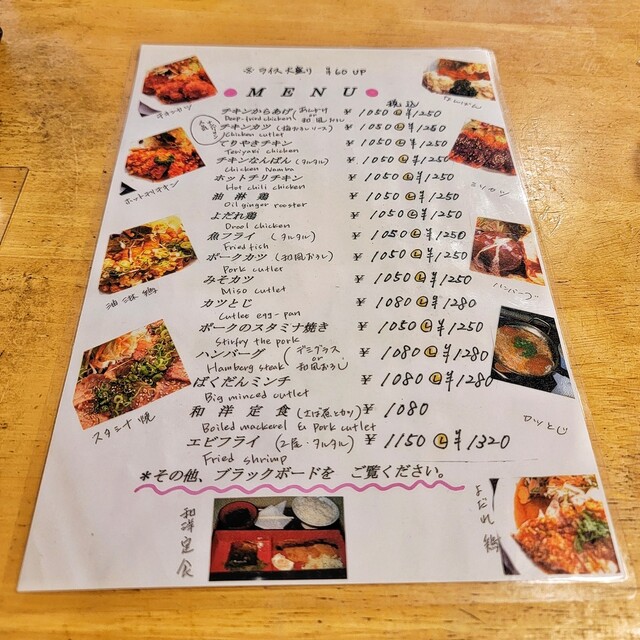 ライス大盛り ¥60 UP
MENU
税込
チキンからあげ ¥1050 Ⓛ¥1250
Deep-fried chicken or 和風おろし
チキンカツ ¥1050 Ⓛ¥1250
Chicken cutlet
てりやきチキン ¥1050 Ⓛ¥1250
Teriyaki chicken
チキンなんばん (タルタル) ¥1050 Ⓛ¥1250
Chicken Nanba
ホットチリチキン ¥1050 Ⓛ¥1250
Hot chili chicken
油淋鶏 ¥1050 Ⓛ¥1250
Oil ginger rooster
よだれ鶏 ¥1050 Ⓛ¥1250
Drool chicken
魚フライ (タルタル) ¥1050 Ⓛ¥1250
Fried fish
ポークカツ (和風おろし) ¥1050 Ⓛ¥1250
Pork cutlet
みそカツ ¥1050 Ⓛ¥1250
Miso cutlet
カツとじ ¥1080 Ⓛ¥1280
Cutlet egg-pan
ポークのスタミナ焼き ¥1050 Ⓛ¥1250
Stirfry the pork
ハンバーグ (デミグラス or 和風おろし) ¥1080 Ⓛ¥1280
Hamberg steak
ばくだんミンチ ¥1080 Ⓛ¥1280
Big minced cutlet
和洋定食 (さば煮とカツ) ¥1080
Boiled mackerel & Pork cutlet
エビフライ (2尾・タルタル) ¥1150 Ⓛ¥1320
Fried shrimp
*その他、ブラックボードを ご覧ください。
チキンカツ
ホットチリチキン
油淋鶏
スタミナ焼
和洋定食
なんばん
ミソカツ
カツとじ
よだれ鶏